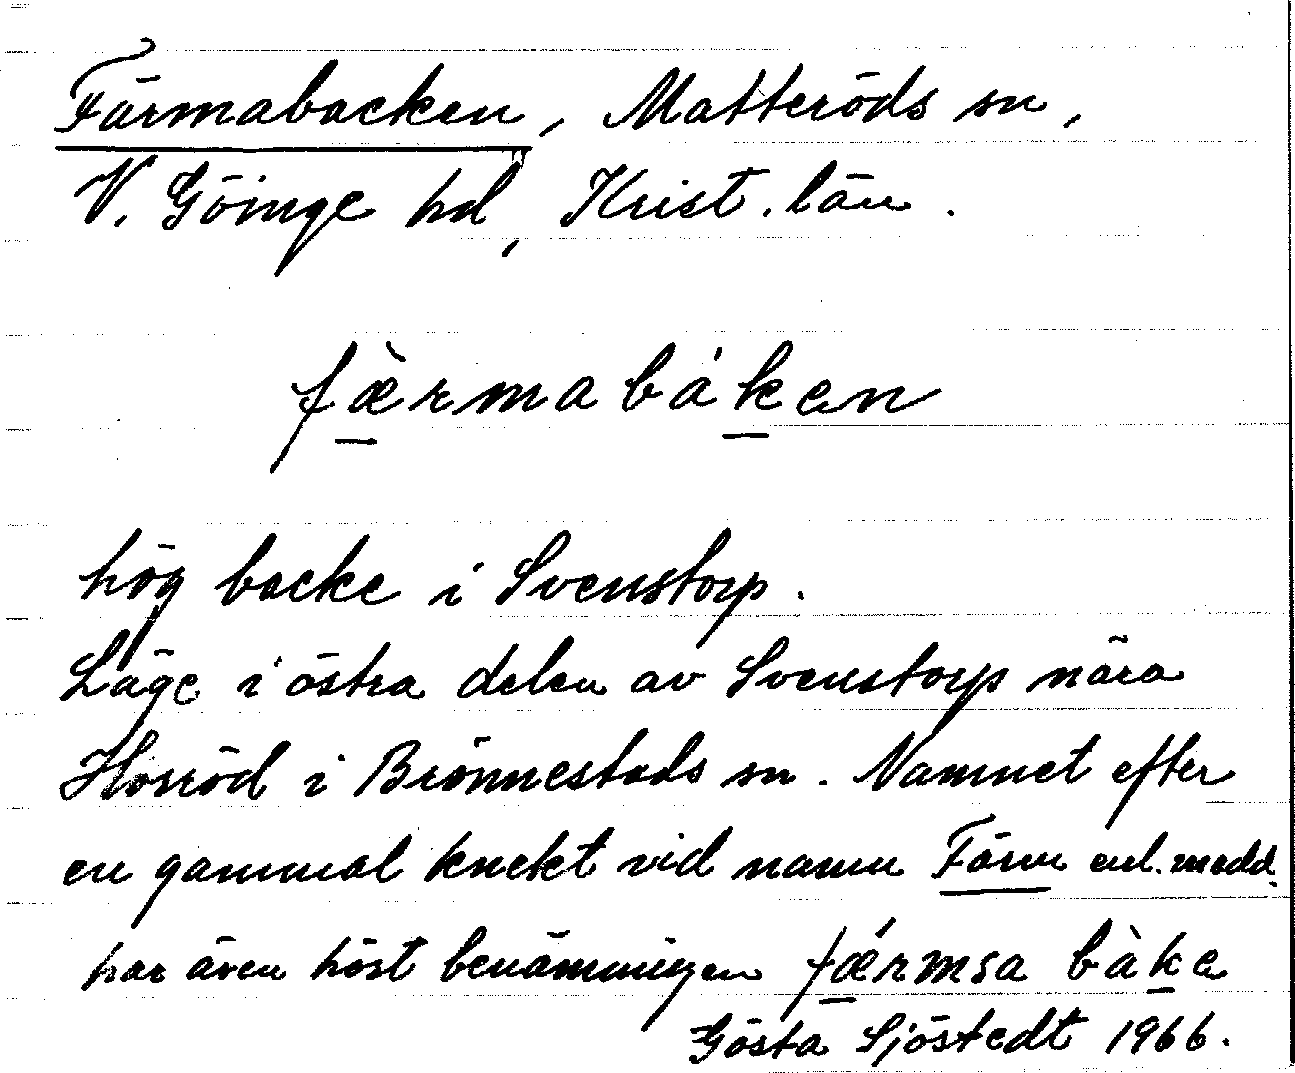 Färmabacken, Matteröds sn,
V. Göinge hd, Krist. län.
fæ̀rmabáken
hög backe i Svenstorp.
Läge i östra delen av Svenstorp nära
Horröd i Brönnestads sn. Namnet efter
en gammal knekt vid namn Färm enl. medd.
har även hört benämningen fǽrmsa bàke
Gösta Sjöstedt 1966.